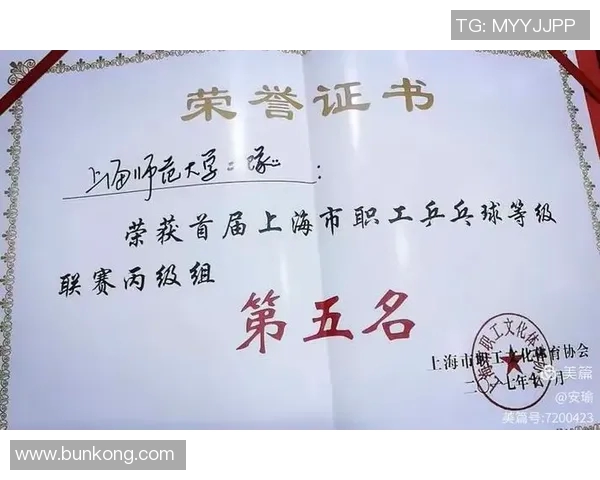 TG: MYYJJPP
荣誉证书
上海师范大学二队:
荣获首届上海市职工乒乓球等级
联赛丙级组
第五名
上海市职工文化体育协会
二〇一七年 月
美篇
@安瑜
美篇号:7200423
www.bunkong.com